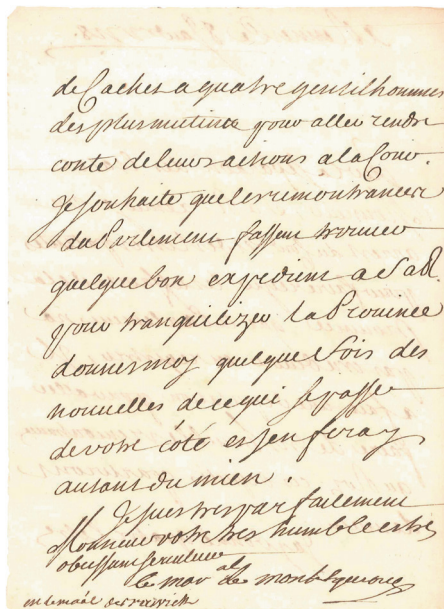 de Cachet a quatre gentilhommes
des plus mutins pour aller rendre
conte de leurs actions a la Cour.
Je souhaite que les remontrances
du Parlement fassent trouver
quelque bon expedient a S.A.R.
pour tranquilizer la Province
donnes moy quelque fois des
nouvelles de ce qui se passe
de votre côté et j'en feray
autant du mien.
Je suis tres parfaitement
Monsieur votre tres humble et tres
obeissant serviteur
le mar al de montesquiou